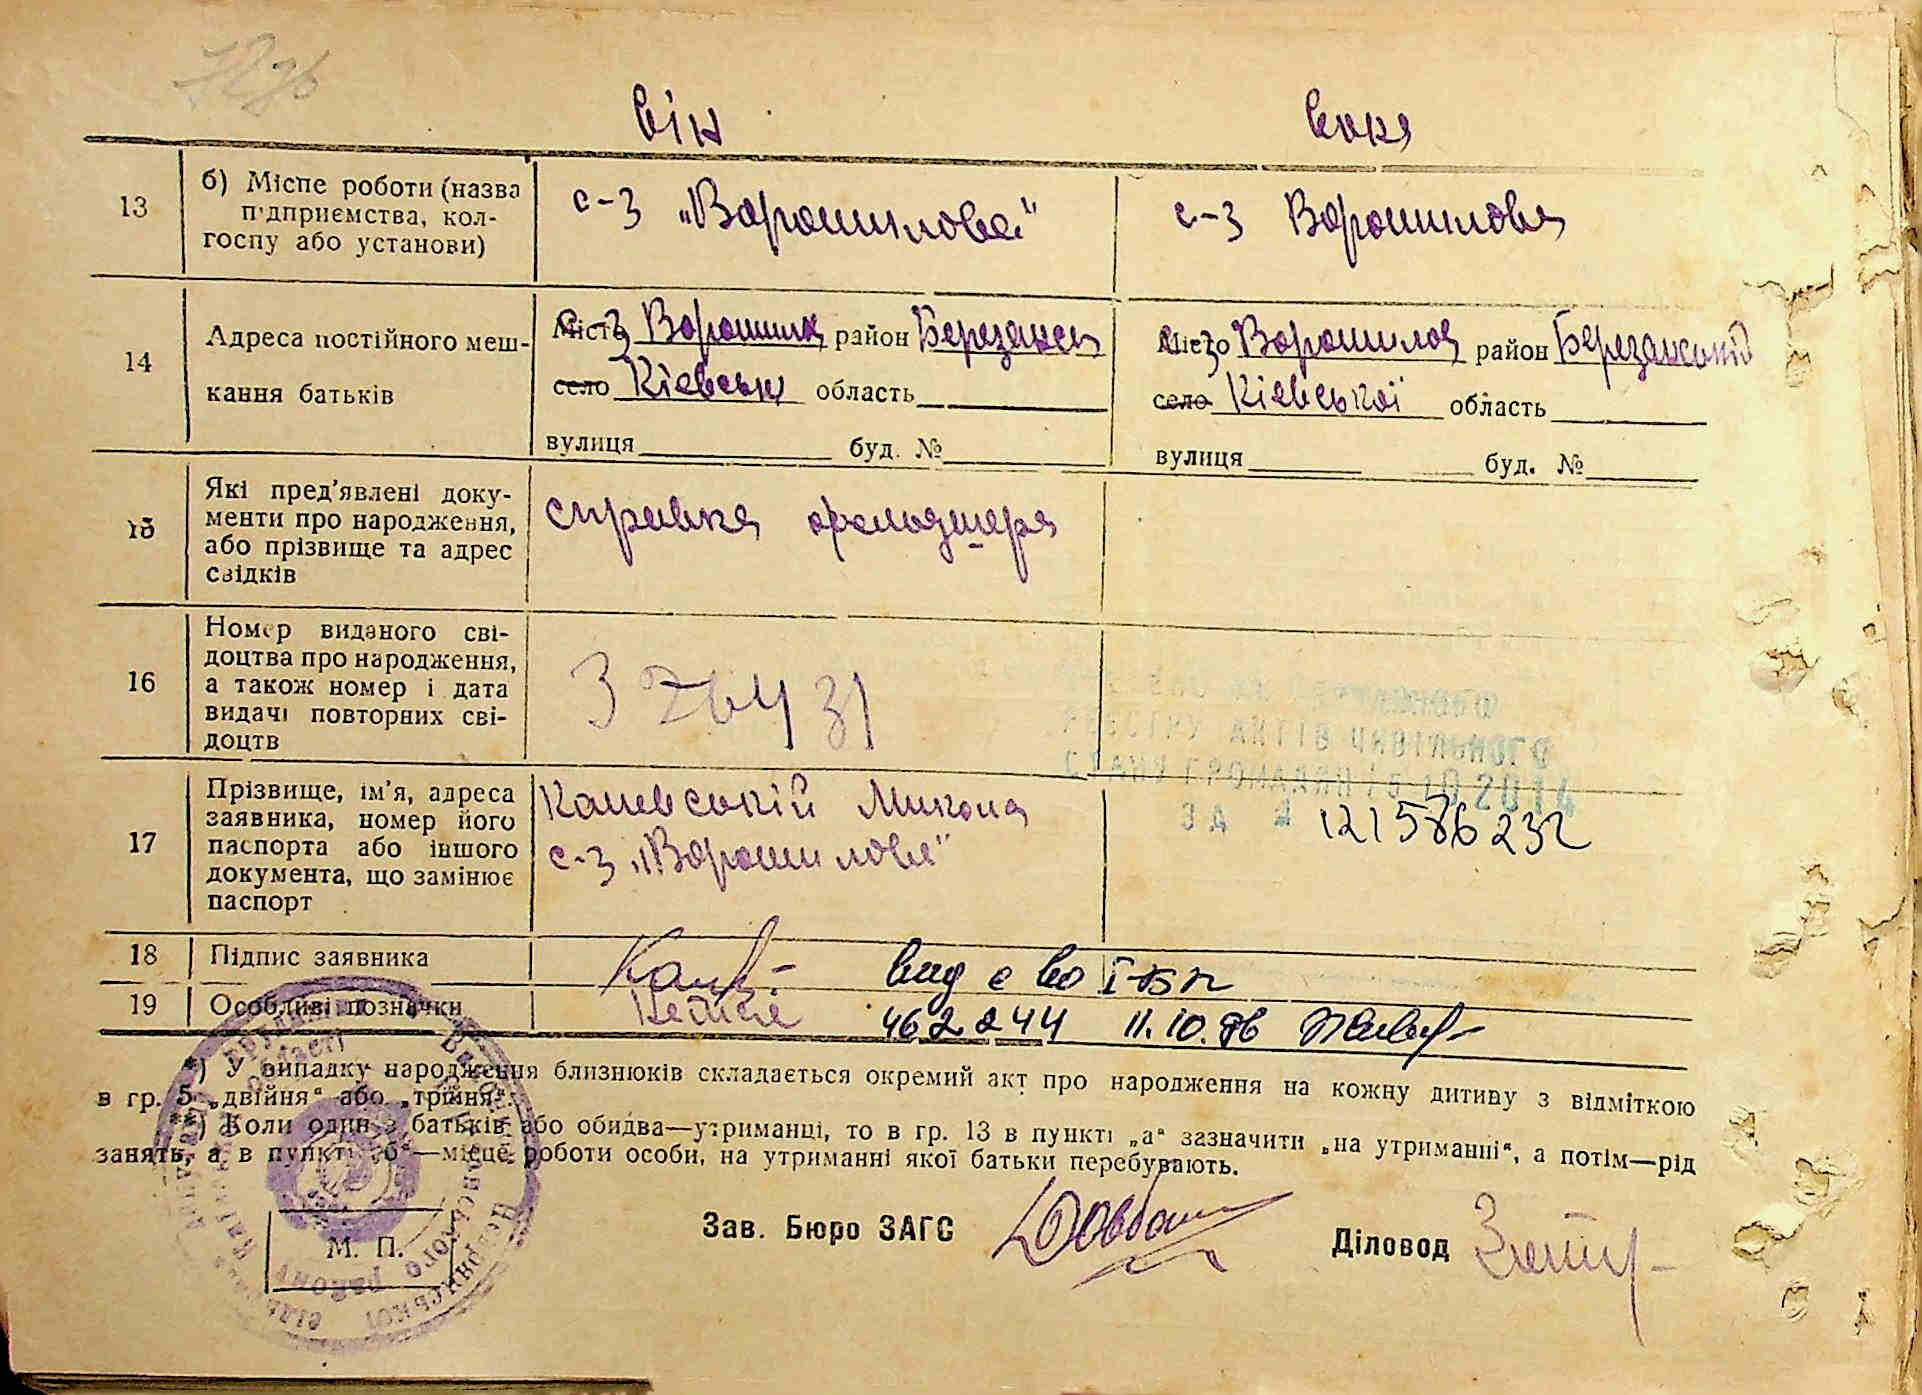 він вона
13 б) Місце роботи (назва
підприємства, кол-
госпу або установи)
с-з „Ворошилова"
с-з Ворошилова
14 Адреса постійного меш-
кання батьків
Місто с-з Ворошилова район Березанськ
село Кіевськ область
вулиця буд. №
Місто с-з Ворошилова район Березанській
село Кіевської область
вулиця буд. №
15 Які пред'явлені доку-
менти про народження,
або прізвище та адрес
свідків
справка фельдшера
16 Номер виданого сві-
доцтва про народження,
а також номер і дата
видачі повторних сві-
доцтв
РЕЄСТРУ АКТІВ ЦИВІЛЬНОГО
СТАНУ ГРОМАДЯН 15 10 2014
ЗА № 121586232
17 Прізвище, ім'я, адреса
заявника, номер його
паспорта або іншого
документа, що замінює
паспорт
Каневській Микола
с-з „Ворошилова"
18 Підпис заявника
вид с во I-БК
19 Особливі позначки
462244 11.10.86
*) У випадку народження близнюків складається окремий акт про народження на кожну дитину з відміткою
в гр. 5 „двійня" або „трійня".
**) Коли один з батьків або обидва—утриманці, то в гр. 13 в пункті „а" зазначити „на утриманні", а потім—рід
занять, а в пункті „б"—місце роботи особи, на утриманні якої батьки перебувають.
М. П.
Зав. Бюро ЗАГС
Діловод